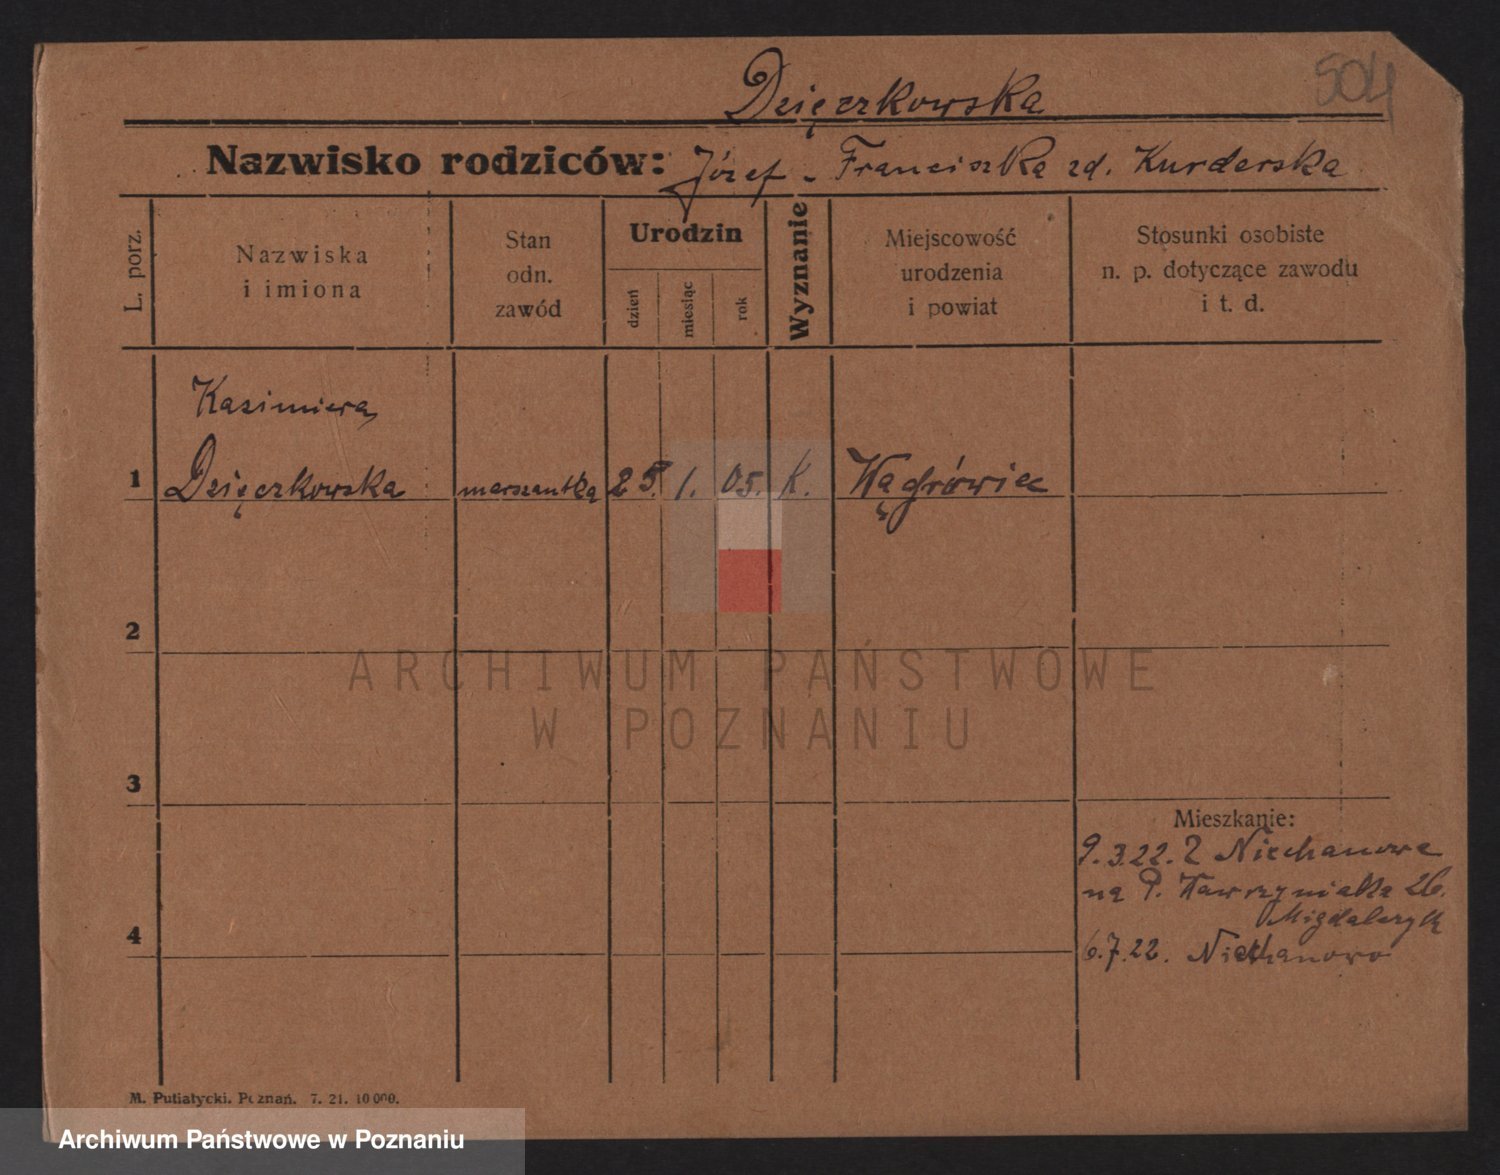 504
Dzięczkowska
Nazwisko rodziców: Józef - Franciszka zd. Kurderska
L. porz.
Nazwiska
i imiona
Stan
odn.
zawód
Urodzin
dzień
miesiąc
rok
Wyznanie
Miejscowość
urodzenia
i powiat
Stosunki osobiste
n. p. dotyczące zawodu
i t. d.
Kazimiera
1 Dzięczkowska 25. 1. 05. K. Wągrówiec
2
ARCHIWUM PAŃSTWOWE
W POZNANIU
3
Mieszkanie:
9.3.22. Z Niechanowa
na P. Wawrzyniaka 26.
Migdalczyk
4
6.7.22. Niechanowo
M. Putiatycki. Poznań. 7. 21. 10 000.
Archiwum Państwowe w Poznaniu